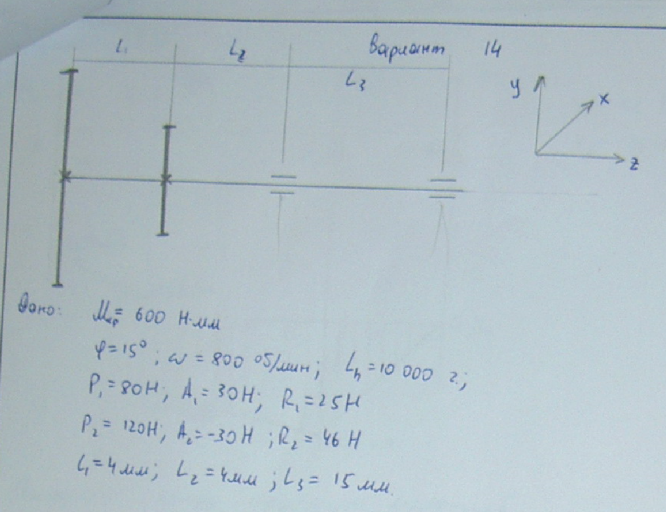 L₁ L₂ Вариант 14
L₃
y x z
Дано: Mкр = 600 Н·мм
φ=15°; ω = 800 об/мин; Lh = 10 000 г.;
P₁ = 80Н; A₁ = 30Н; R₁ = 25Н
P₂ = 120Н; A₂ = -30Н; R₂ = 46 Н
L₁ = 4мм; L₂ = 4мм; L₃ = 15 мм.